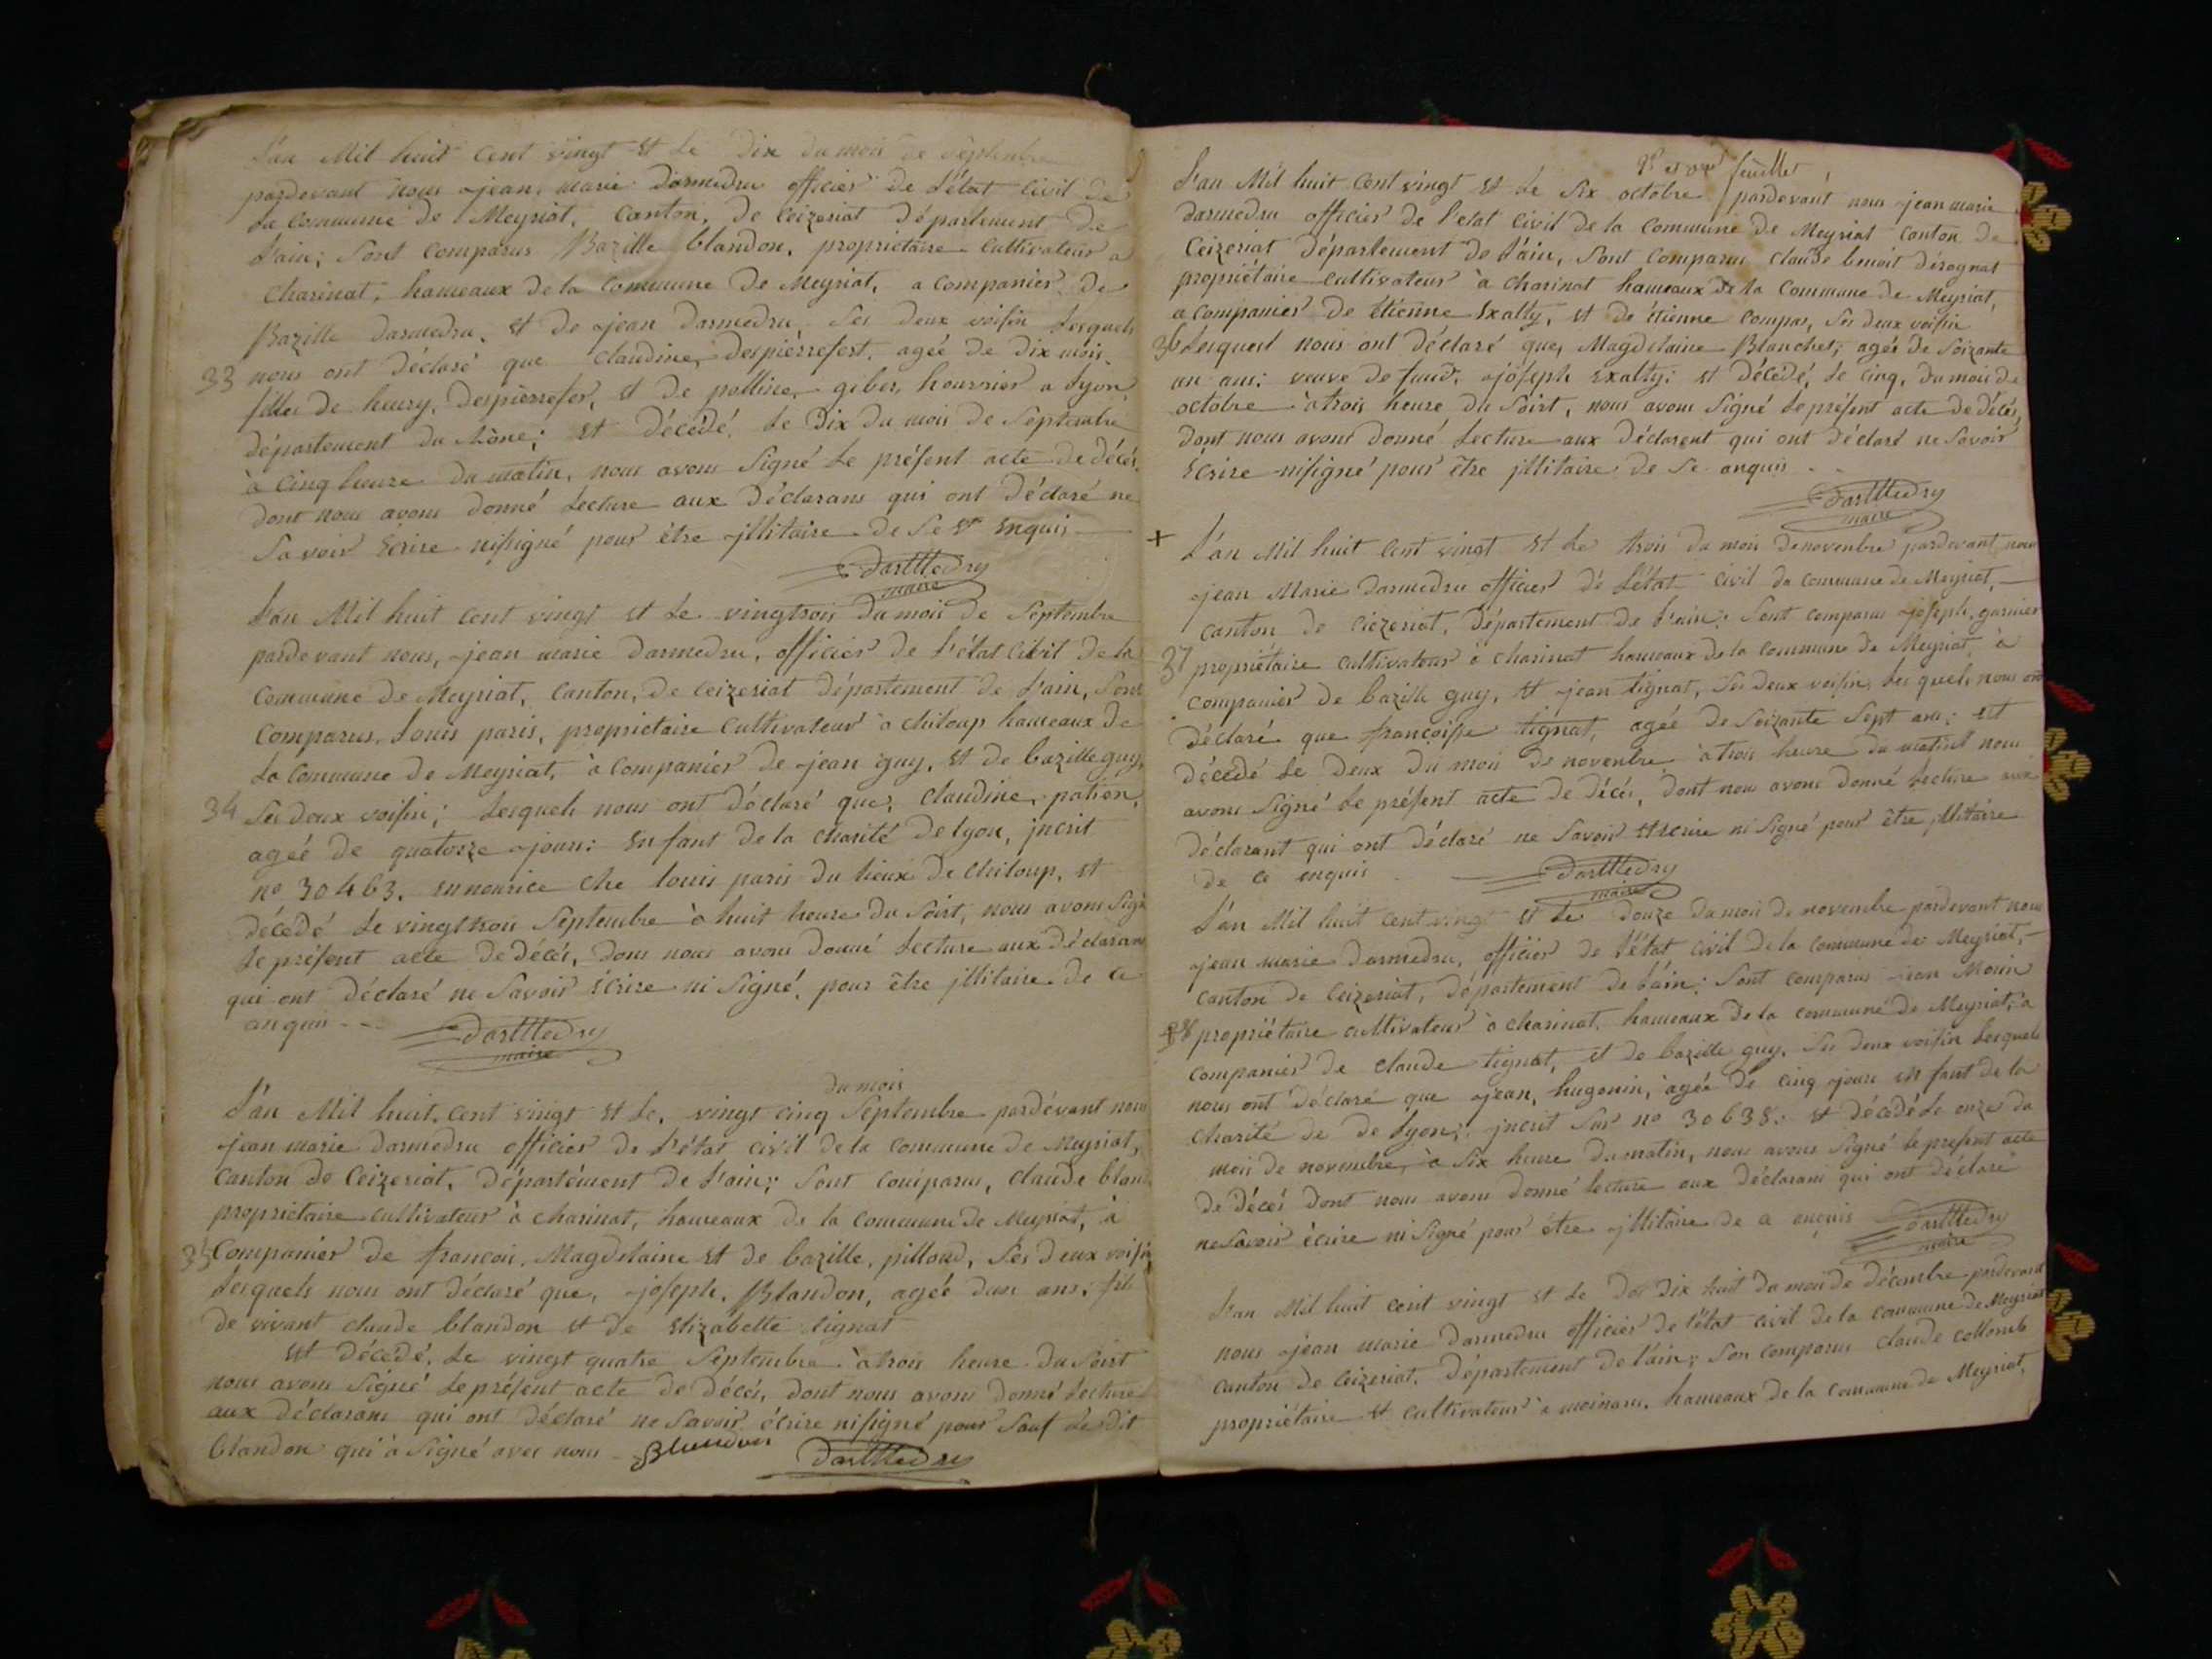 L'an Mil huit Cent vingt et le Dix du mois de Septembre
pardevant nous jean marie Darmedru officier de L'état Civil de
La Commune de Meyriat, Canton, de Ceizeriat département de
L'ain; Sont Comparus Bazille blandon, propriétaire Cultivateur a
Charinat, hameaux de la Commune de Meyriat, a Companier de
Bazille darmedru, et de jean darmedru, Ses deux voisin Lesquels
33 nous ont déclaré que Claudine, despierrefort, agée de dix mois
filles de henry, Despierrefor, et de polline, giber, a Lyon
département du Rône; et Décédé, Le Dix du mois de Septembre
à Cinq heure du matin, nous avons Signé Le présent acte de décés
dont nous avons donné Lecture aux déclarans qui ont déclaré ne
Savoir Ecrire nisigné pour être jllitaire de Se Enquis
Darmedru
maire
L'an Mil huit cent vingt et Le vingtrois du mois de Septembre
pardevant nous, jean marie darmedru, officier de L'état Civil de la
Commune de Meyriat, Canton, de Ceizeriat département de L'ain, Sont
Comparus, Louis paris, propriétaire Cultivateur à chiloup hameaux de
La Commune de Meyriat, à Companier de jean guy, et de bazille guy,
34 Ses deux voisin; Lesquels nous ont déclaré que, Claudine, pation,
agée de quatorze jours: Enfant de la Charité de Lyon, jncrit
no 30463. en nourice Che louis paris du lieux de Chiloup, et
décédé Le vingttrois Septembre à huit heure du Soirt, nous avons Signé
Le présent acte de décés, dons nous avons donné Lecture aux déclarans
qui ont déclaré ne Savoir Ecrire ni Signé, pour être jllitaire de Ce
anquis
Darmedru
maire
du mois
L'an Mil huit, cent vingt et Le, vingt cinq Septembre pardévant nous
jean marie darmedru officier de L'état civil de la Commune de Meyriat,
Canton de Ceizeriat, département de L'ain; Sont Comparus, Claude bland
propriétaire Cultivateur à charinat, hameaux de la Commune de Meyriat, à
35 Companier de françois, Magdelaine et de bazille, pilloud, Ses deux voisin
Lesquels nous ont déclaré que, joseph, Blandon, agée dun ans; fils
de vivant claude blandon et de Elizabette tignat
et décédé, Le vingt quatre Septembre à trois heure du Soirt
nous avons Signé Le présent acte de Décés, dont nous avons donné Lecture
aux déclarans qui ont déclaré ne Savoir écrire nisigné pour Sauf Le dit
blandon qui à Signé avec nous Blandon
Darmedru
feuillet
L'an Mil huit Cent vingt et Le Six octobre pardevant nous jean marie
darmedru officier de l'etat Civil de la Commune de Meyriat Canton de
Ceizeriat département de L'ain, Sont Comparus Claude benoit dérognat
propriétaire Cultivateur à Charinat hameaux de la Commune de Meyriat,
a Companier de Etienne Exalty, et de étienne Compas, Ses deux voisin
36 Lesquesl nous ont déclaré que, Magdelaine Blanchet; agée de Soizante
un ans; veuve de joseph Exalty; et décédé, Le cinq, du mois de
octobre à trois heure du Soirt, nous avons Signé Le présent acte de décés,
dont nous avons donné Lecture aux déclarent qui ont déclaré ne Savoir
Ecrire nisigné pour être jllitaire de Se anquis
Darmedru
maire
+ L'an Mil huit Cent vingt et Le trois du mois de novenbre pardevant nous
jean Marie darmedru officier de L'état Civil da Commune de Meyriat,
Canton de Ciezeriat, département de L'ain; Sont comparus joseph, garnier
37 propriétaire Cultivateur à Charinat hameaux de la commune de Meyriat, à
Companier de bazille guy, et jean tignat, Ses deux voisin, Les quels nous ont
déclaré que françoisse tignat, agée de Soizante Sept ans; est
décédé Le deux du mois de novenbre à trois heure du matint nous
avons Signé Le présent acte de décés, dont nous avons donné Lecture aux
déclarant qui ont déclaré ne Savoir Etscrire ni Signé pour être jllitaire
de Ce enquis
Darmedru
maire
L'an Mil huit Cent vingt et Le douze du mois de novembre pardevant nous
jean marie darmedru, officier de L'état civil de la commune de Meyriat,
Canton de Ceizeriat, département de L'ain; Sont comparus jean Monin
38 propriétaire cultivateur à charinat, hameaux de la commune de Meyriat, a
Companier de Claude tignat, et de bazille guy, Ses deux voisin Lesquels
nous ont déclaré que jean, hugonin, agée de cinq jours enfant de la
Charité de de Lyon; jncrit Sur no 30638: et décédé Le onze du
mois de novembre, à Six heure du matin, nous avons Signé Le present acte
de Décés dont nous avons donné lecture aux déclarans qui ont déclaré
ne Savoir écrire ni Signé pour être jllitaire de ce enquis
Darmedru
maire
L'an Mil huit cent vingt et Le Dix huit du mois de décembre pardevant
nous jean marie darmedru officier de l'état civil de la commune de Meyriat
Canton de Ceizeriat, département de L'ain; Son comparus Claude collomb
propriétaire et cultivateur à moinans, hameaux de la commune de Meyriat,